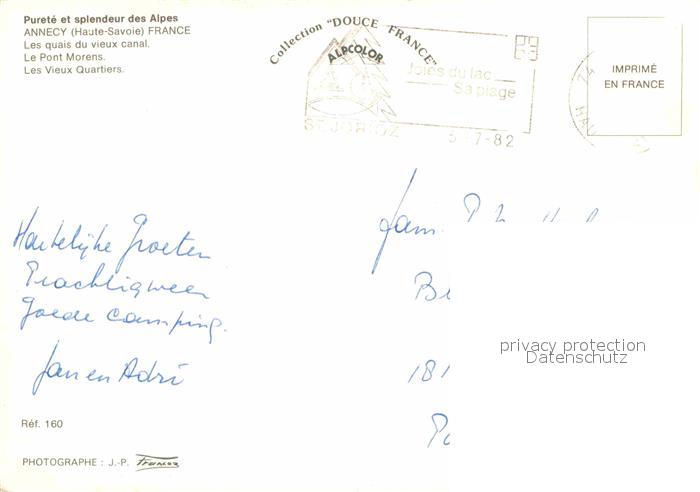 Pureté et splendeur des Alpes
ANNECY (Haute-Savoie) FRANCE
Les quais du vieux canal.
Le Pont Morens.
Les Vieux Quartiers.
Collection "DOUCE FRANCE"
ALPCOLOR
Joies du lac
Sa plage
ST JORIOZ
5-7-82
74
HAU
IMPRIMÉ
EN FRANCE
Hartelijke Groeten
Prachtig weer
Goede camping.
Jan en Adri
Fam.
181
privacy protection
Datenschutz
Réf. 160
PHOTOGRAPHE : J.-P. Francoz